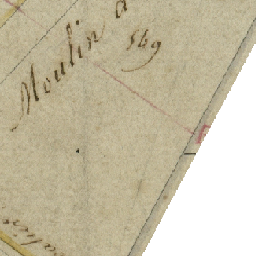 Moulin à
549